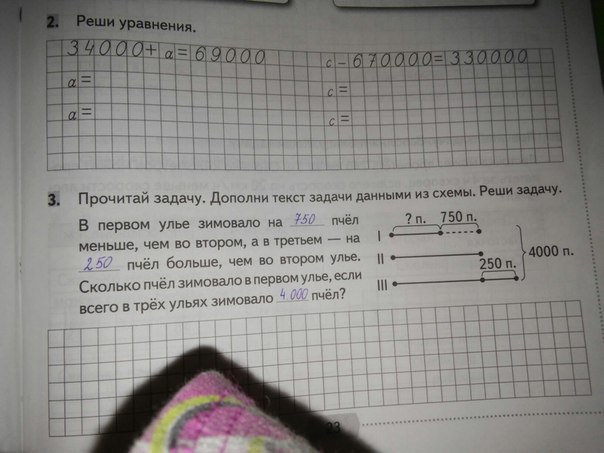 2. Реши уравнения.
34000+a=69000 c-670000=330000
a= c=
a= c=
3. Прочитай задачу. Дополни текст задачи данными из схемы. Реши задачу.
В первом улье зимовало на 750 пчёл
меньше, чем во втором, а в третьем — на
250 пчёл больше, чем во втором улье.
Сколько пчёл зимовало в первом улье, если
всего в трёх ульях зимовало 4.000 пчёл?
? п. 750 п.
I
II
250 п.
III
4000 п.
23